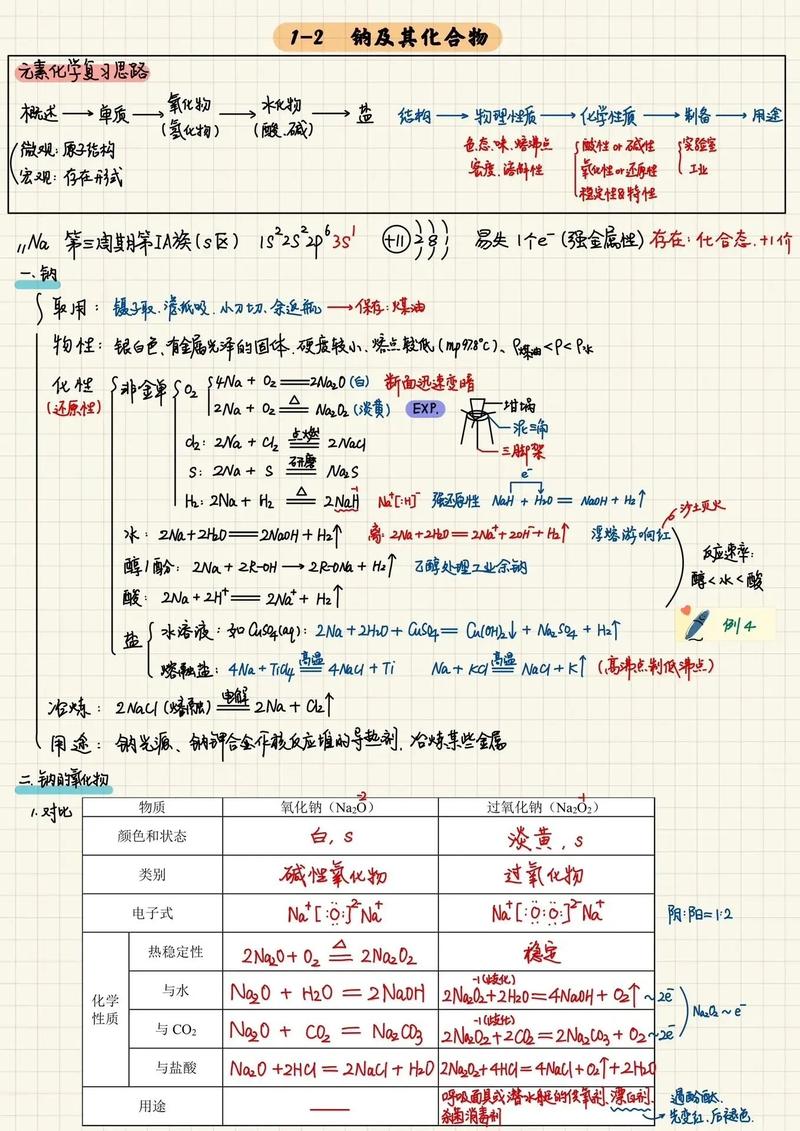 1-2 钠及其化合物
元素化学复习思路
概述→单质→氧化物(氢化物)→水化物(酸、碱)→盐 结构→物理性质→化学性质→制备→用途
微观:原子结构
宏观:存在形式
色、态、味、熔沸点
密度、溶解性
酸性or碱性
氧化性or还原性
稳定性&特性
实验室
工业
₁₁Na 第三周期第ⅠA族(s区) 1s²2s²2p⁶3s¹ +11 2 8 1 易失1个e⁻(强金属性) 存在:化合态,+1价
一、钠
取用:镊子取、滤纸吸、小刀切、余返瓶→保存:煤油
物性:银白色、有金属光泽的固体、硬度较小、熔点较低(mp97.8℃)、ρ煤油<ρ<ρ水
化性(还原性)
非金单
O₂ 4Na + O₂ == 2Na₂O(白) 断面迅速变暗
2Na + O₂ =△= Na₂O₂(淡黄) EXP.
坩埚
泥三角
三脚架
Cl₂: 2Na + Cl₂ =点燃= 2NaCl
S: 2Na + S =研磨= Na₂S
H₂: 2Na + H₂ =△= 2NaH -1 Na⁺[:H]⁻ 强还原性 NaH + H₂O == NaOH + H₂↑ e⁻
水: 2Na+2H₂O == 2NaOH + H₂↑ 离: 2Na+2H₂O == 2Na⁺+2OH⁻+H₂↑ 浮熔游响红 沙土灭火
醇/酚: 2Na + 2R-OH → 2R-ONa + H₂↑ 乙醇处理工业余钠
酸: 2Na + 2H⁺ == 2Na⁺ + H₂↑
反应速率:
醇<水<酸
例4
盐
水溶液:如CuSO₄(aq): 2Na + 2H₂O + CuSO₄ == Cu(OH)₂↓ + Na₂SO₄ + H₂↑
熔融盐: 4Na + TiCl₄ =高温= 4NaCl + Ti Na + KCl =高温= NaCl + K↑ (高沸点制低沸点)
冶炼: 2NaCl(熔融) =电解= 2Na + Cl₂↑
用途: 钠光源、钠钾合金作核反应堆的导热剂、冶炼某些金属
二、钠的氧化物
1.对比
物质 氧化钠(Na₂O) -2 过氧化钠(Na₂O₂) -1
颜色和状态 白, s 淡黄, s
类别 碱性氧化物 过氧化物
电子式 Na⁺[:O:]²⁻Na⁺ Na⁺[:O:O:]²⁻Na⁺ 阴:阳=1:2
化学性质
热稳定性 2Na₂O+O₂ =△= 2Na₂O₂ 稳定
与水 Na₂O + H₂O = 2NaOH 2Na₂O₂+2H₂O=4NaOH+O₂↑ -1(歧化) ~2e⁻
与CO₂ Na₂O + CO₂ = Na₂CO₃ 2Na₂O₂+2CO₂=2Na₂CO₃+O₂ -1(歧化) ~2e⁻
Na₂O₂~e⁻
与盐酸 Na₂O+2HCl=2NaCl+H₂O 2Na₂O₂+4HCl=4NaCl+O₂↑+2H₂O
用途 —— 呼吸面具或潜水艇的供氧剂、漂白剂、
杀菌消毒剂
遇酚酞、
先变红,后褪色.